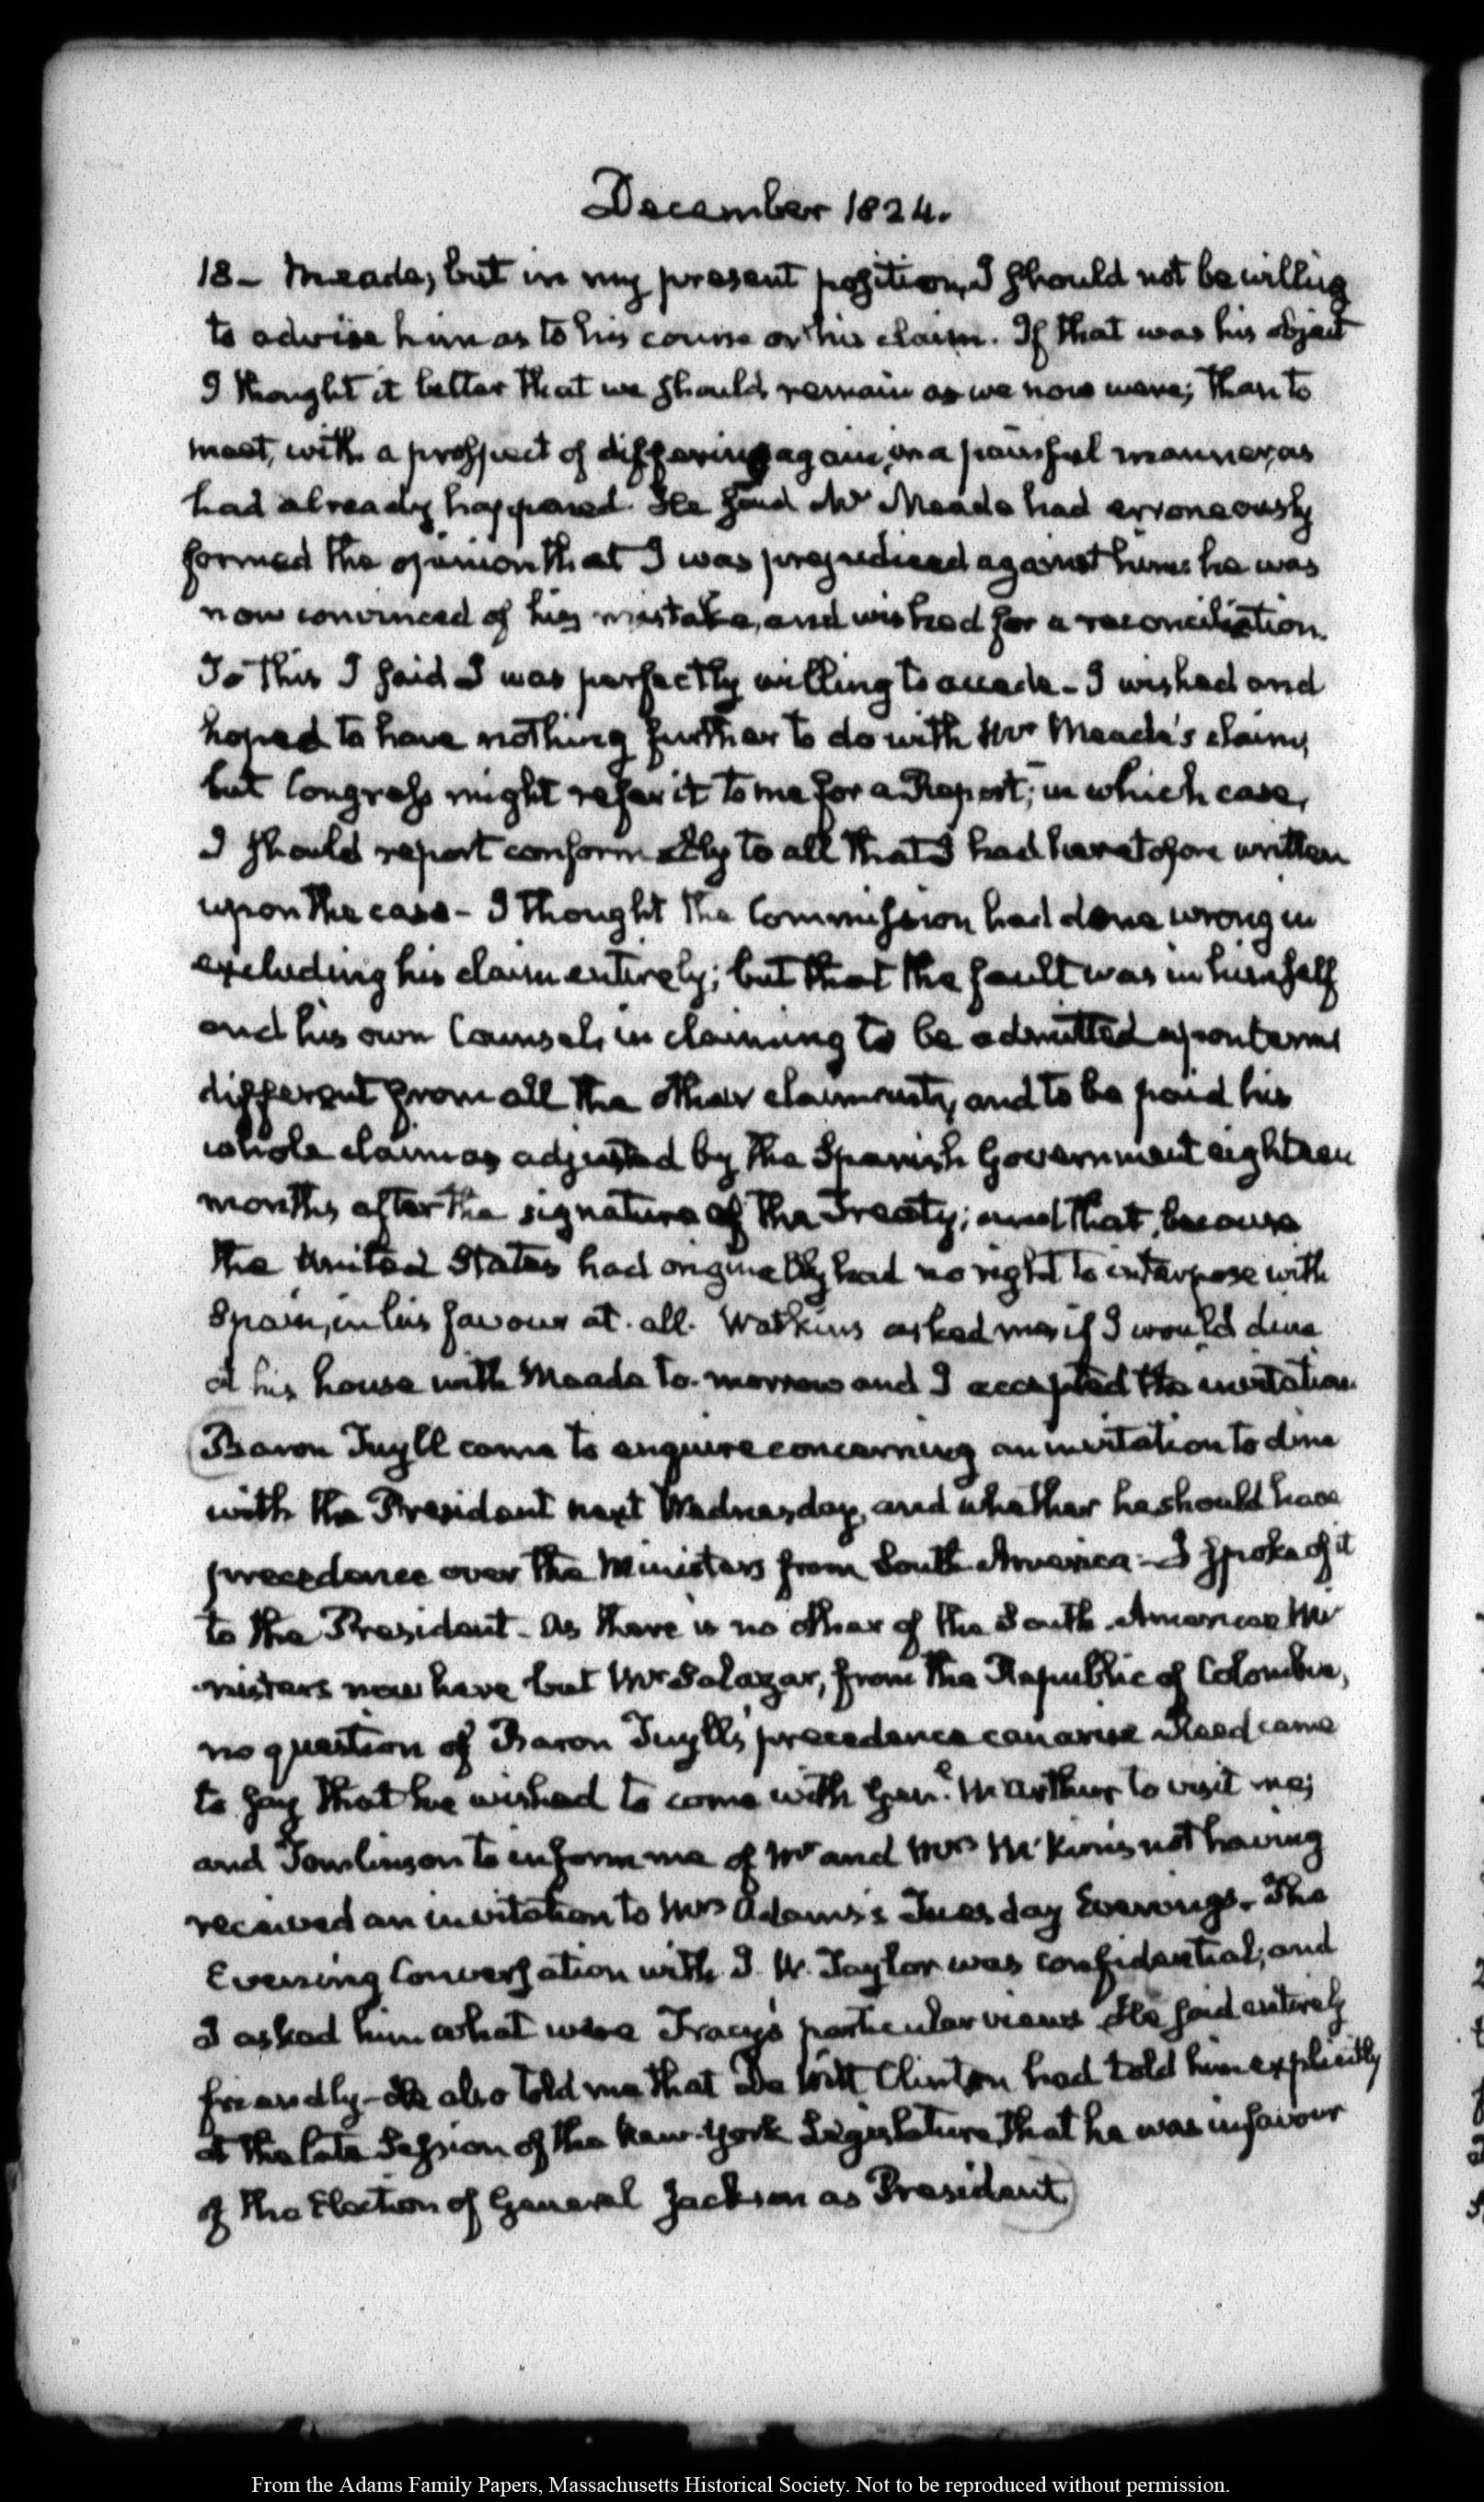 December 1824.
18- Meade; but in my present position, I should not be willing
to advise him as to his course or his claim. If that was his object
I thought it better that we should remain as we now were; than to
meet, with a prospect of differing again, in a painful manner, as
had already happened. He said Mr Meade had erroneously
formed the opinion that I was prejudiced against him: he was
now convinced of his mistake, and wished for a reconciliation.
To this I said I was perfectly willing to accede- I wished and
hoped to have nothing further to do with Mr Meade's claim,
but Congress might refer it to me for a Report; in which case,
I should report conformably to all that I had heretofore written
upon the case- I thought the Commission had done wrong in
excluding his claim entirely; but that the fault was in himself
and his own Counsel, in claiming to be admitted upon terms
different from all the other claimants, and to be paid his
whole claim as adjusted by the Spanish Government eighteen
months after the signature of the Treaty; and that, because
the United States had originally had no right to interpose with
Spain, in his favour at all. Watkins asked me if I would dine
at his house with Meade to-morrow and I accepted the invitation
Baron Tuyll came to enquire concerning an invitation to dine
with the President next Wednesday, and whether he should have
precedence over the Ministers from South America- I spoke of it
to the President- As there is no other of the South American Mi
nisters now here but Mr Salazar, from the Republic of Colombia,
no question of Baron Tuyll's precedence can arise Reed came
to say that he wished to come with Genl. McArthur to visit me;
and Tomlinson to inform me of Mr and Mrs McKim's not having
received an invitation to Mrs Adams's Tuesday Evenings. The
Evening Conversation with J. W. Taylor was confidential; and
I asked him what were Tracy's particular views He said entirely
friendly- He also told me that De Witt Clinton had told him explicitly
at the late Session of the New-York Legislature, that he was in favour
of the Election of General Jackson as President.
From the Adams Family Papers, Massachusetts Historical Society. Not to be reproduced without permission.